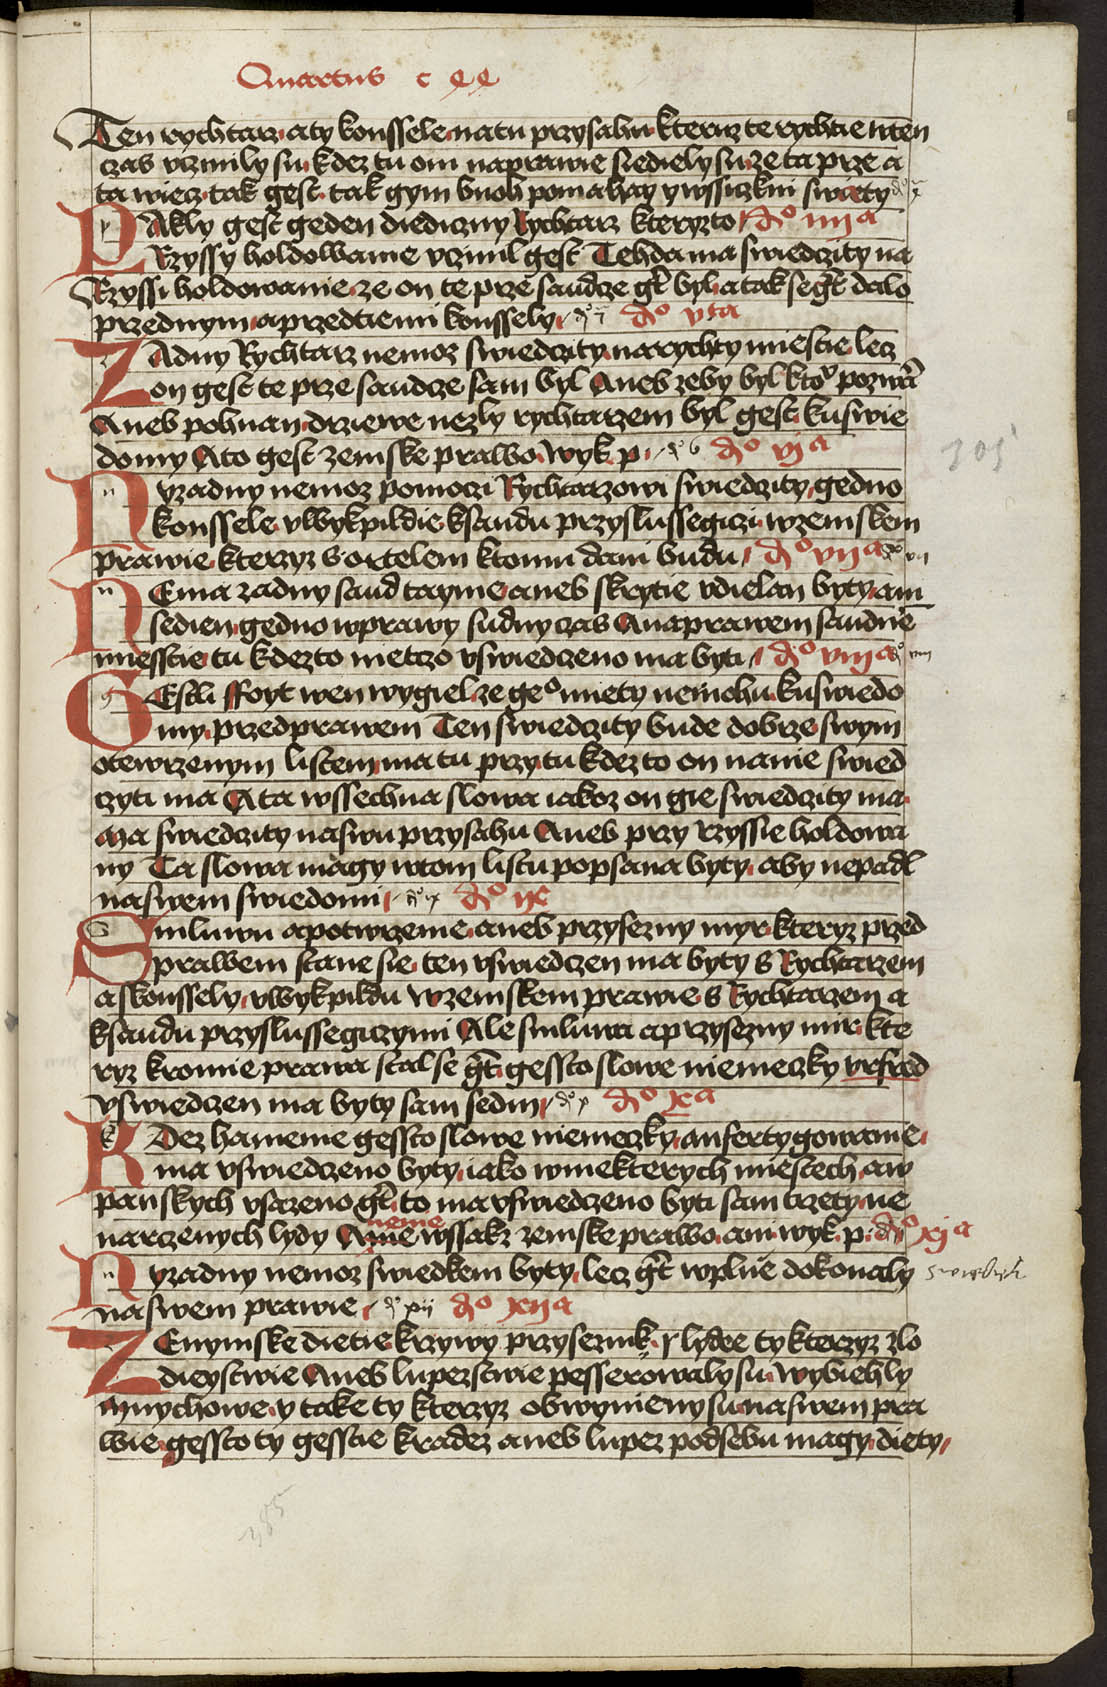 Quartus c
Ten rychtarz aty konssele natu przysahu kteruz te rychtie uten
czas vzinily su kdez tu oni naprawie siediely su ze ta prze a
ta wiecz tak gest tak gym buoh pomahay y wssiczkni swiety
PAkly gest geden diediczny Rychtarz kteryzto do iiii a
Rzyssy holdowanie vczinil gest Tehda ma swiedczity na
Rzyssi holdowanie ze on te prze saudcze gt byl a tak se gt dalo
przednym aprzedtiemi konssely do vta
ZAdny Rychtarz nemoz swiedczity narychty miestie lecz
on gest te prze saudcze sam byl Aneb zeby byl
Aneb pohnan drziewe nezly rychtarzem byl gest kuswie
domy Ato gest zemske prawo wyk p 6 do vi a
305
Nyzadny nemoz pomoczi Rychtarzowi swiedczity gedno
konssele vwykpildie ksaudu przyslussegiczi wzemskem
prawie kteryz s ortelem ktomu dani budu do vii a vii
NEma zadny saud taynie aneb skrytie vdielan byty ani
sedien gedno wprawy sudny czas Anaprawem saudnē
miesstie tu kdezto nietczo vswiedczeno ma byti do viii a viii
GEstli ffoyt wen wygiel ze geo miety nemohu kuswiedo
my przedprawem Ten swiedczity bude dobrze swym
otewrzenym listem ma tu przytu kdezto on nanie swied
czyti ma A ta wssechna slowa iakoz on gie swiedczity ma
Ma swiedczity naswu przysahu Aneb przy rzyssie holdowa
ny Ta slowa magy wtom listu popsana byty aby nepadl
naswem swiedomi do ix
Smluwu apotwrzenie aneb przysezny myr kteryz przed
prawem stane sie ten vswiedczen ma byty s Rychtarzem
a skonssely vwykpildu wzemskem prawie s Rychtarzem a
ksaudu przyslussegiczymi Ale smluwa aprzysezny mir kte
ryz kromie prawa stal se gt gessto slowe niemeczky vrfred
vswiedczen ma byty sam sedm do x a
KDez hanienie gessto slowe niemeczky anfertygowanie
ma vswiedczeno byty iako wniekterych miestech aw
panskych vsazeno gt to ma vswiedczeno byti sam trzety ne
neme
narczenych lydy A wssakz zemske prawo ani wyk p do xi a
Nyzadny nemoz swiedkem byty lecz gt wplnē dokonaly
naswem prawie xii do xii a
ZEnynske dietie krzywy przyseznik y lydee ty kterzyz zlo
dieystwie Aneb lupezstwie pesserowaly su wybiehly
Mnychowe y take ty kterzyz obwynieny su naswem pra
wie gessto ty gesstie kradez aneb lupez podsebu magy diety
385